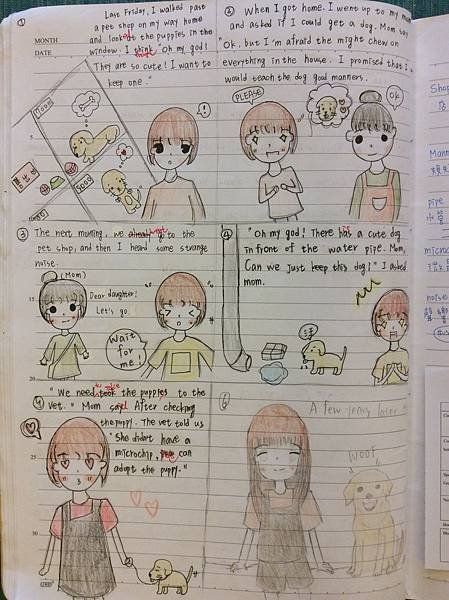 ①
Last Friday, I walked past
a pet shop on my way home
and looked the puppies in the
window. I think "Oh my god!
They are so cute! I want to
keep one."
MONTH
DATE
②
When I got home. I went up to my mom
and asked if I could get a dog. Mom say
"Ok, but I'm afraid the might chew on
everything in the house. I promised that I
would teach the dog good manners.
PLEASE
OK
5
③
The next morning, we already went to the
pet shop, and then I heard some strange
noise.
(Mom)
15
Dear daughter!
Let's go
Wait
for
me!
20
④
"Oh my god! There has a cute dog
in front of the water pipe. Mom,
Can we just keep this dog?" I asked
mom.
"We need to take the puppies to the
vet." Mom said. After checking
the puppy. The vet told us
"She didn't have a
microchip, you can
adopt the puppy."
25
30
6
A few years later
WOOF
Shop
店
Mann
pipe
水管
micro
noise